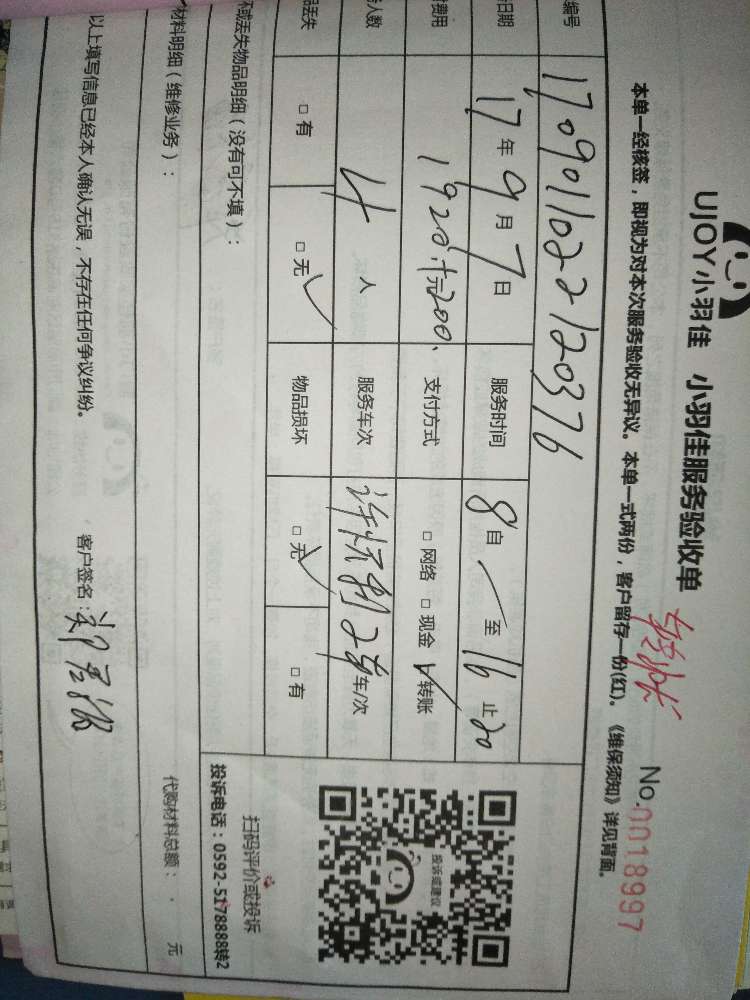 UJOY小羽佳 小羽佳服务验收单
No.0018997
本单一经核签，即视为对本次服务验收无异议。本单一式两份，客户留存一份(红)。《维保须知》详见背面。
编号 170901102212037 6
日期 17年9月7日 服务时间 8自 至16止20
费用 1920.+元200、 支付方式 □网络 □现金 转账
人数 4人 服务车次 2 车/次
品丢失 □有 □无✓ 物品损坏 □无✓ □有
坏或丢失物品明细（没有可不填）：
扫码评价或投诉
投诉电话：0592-5178888转2
投诉或建议
材料明细（维修业务）： 代购材料总额： 元
以上填写信息已经本人确认无误，不存在任何争议纠纷。 客户签名：